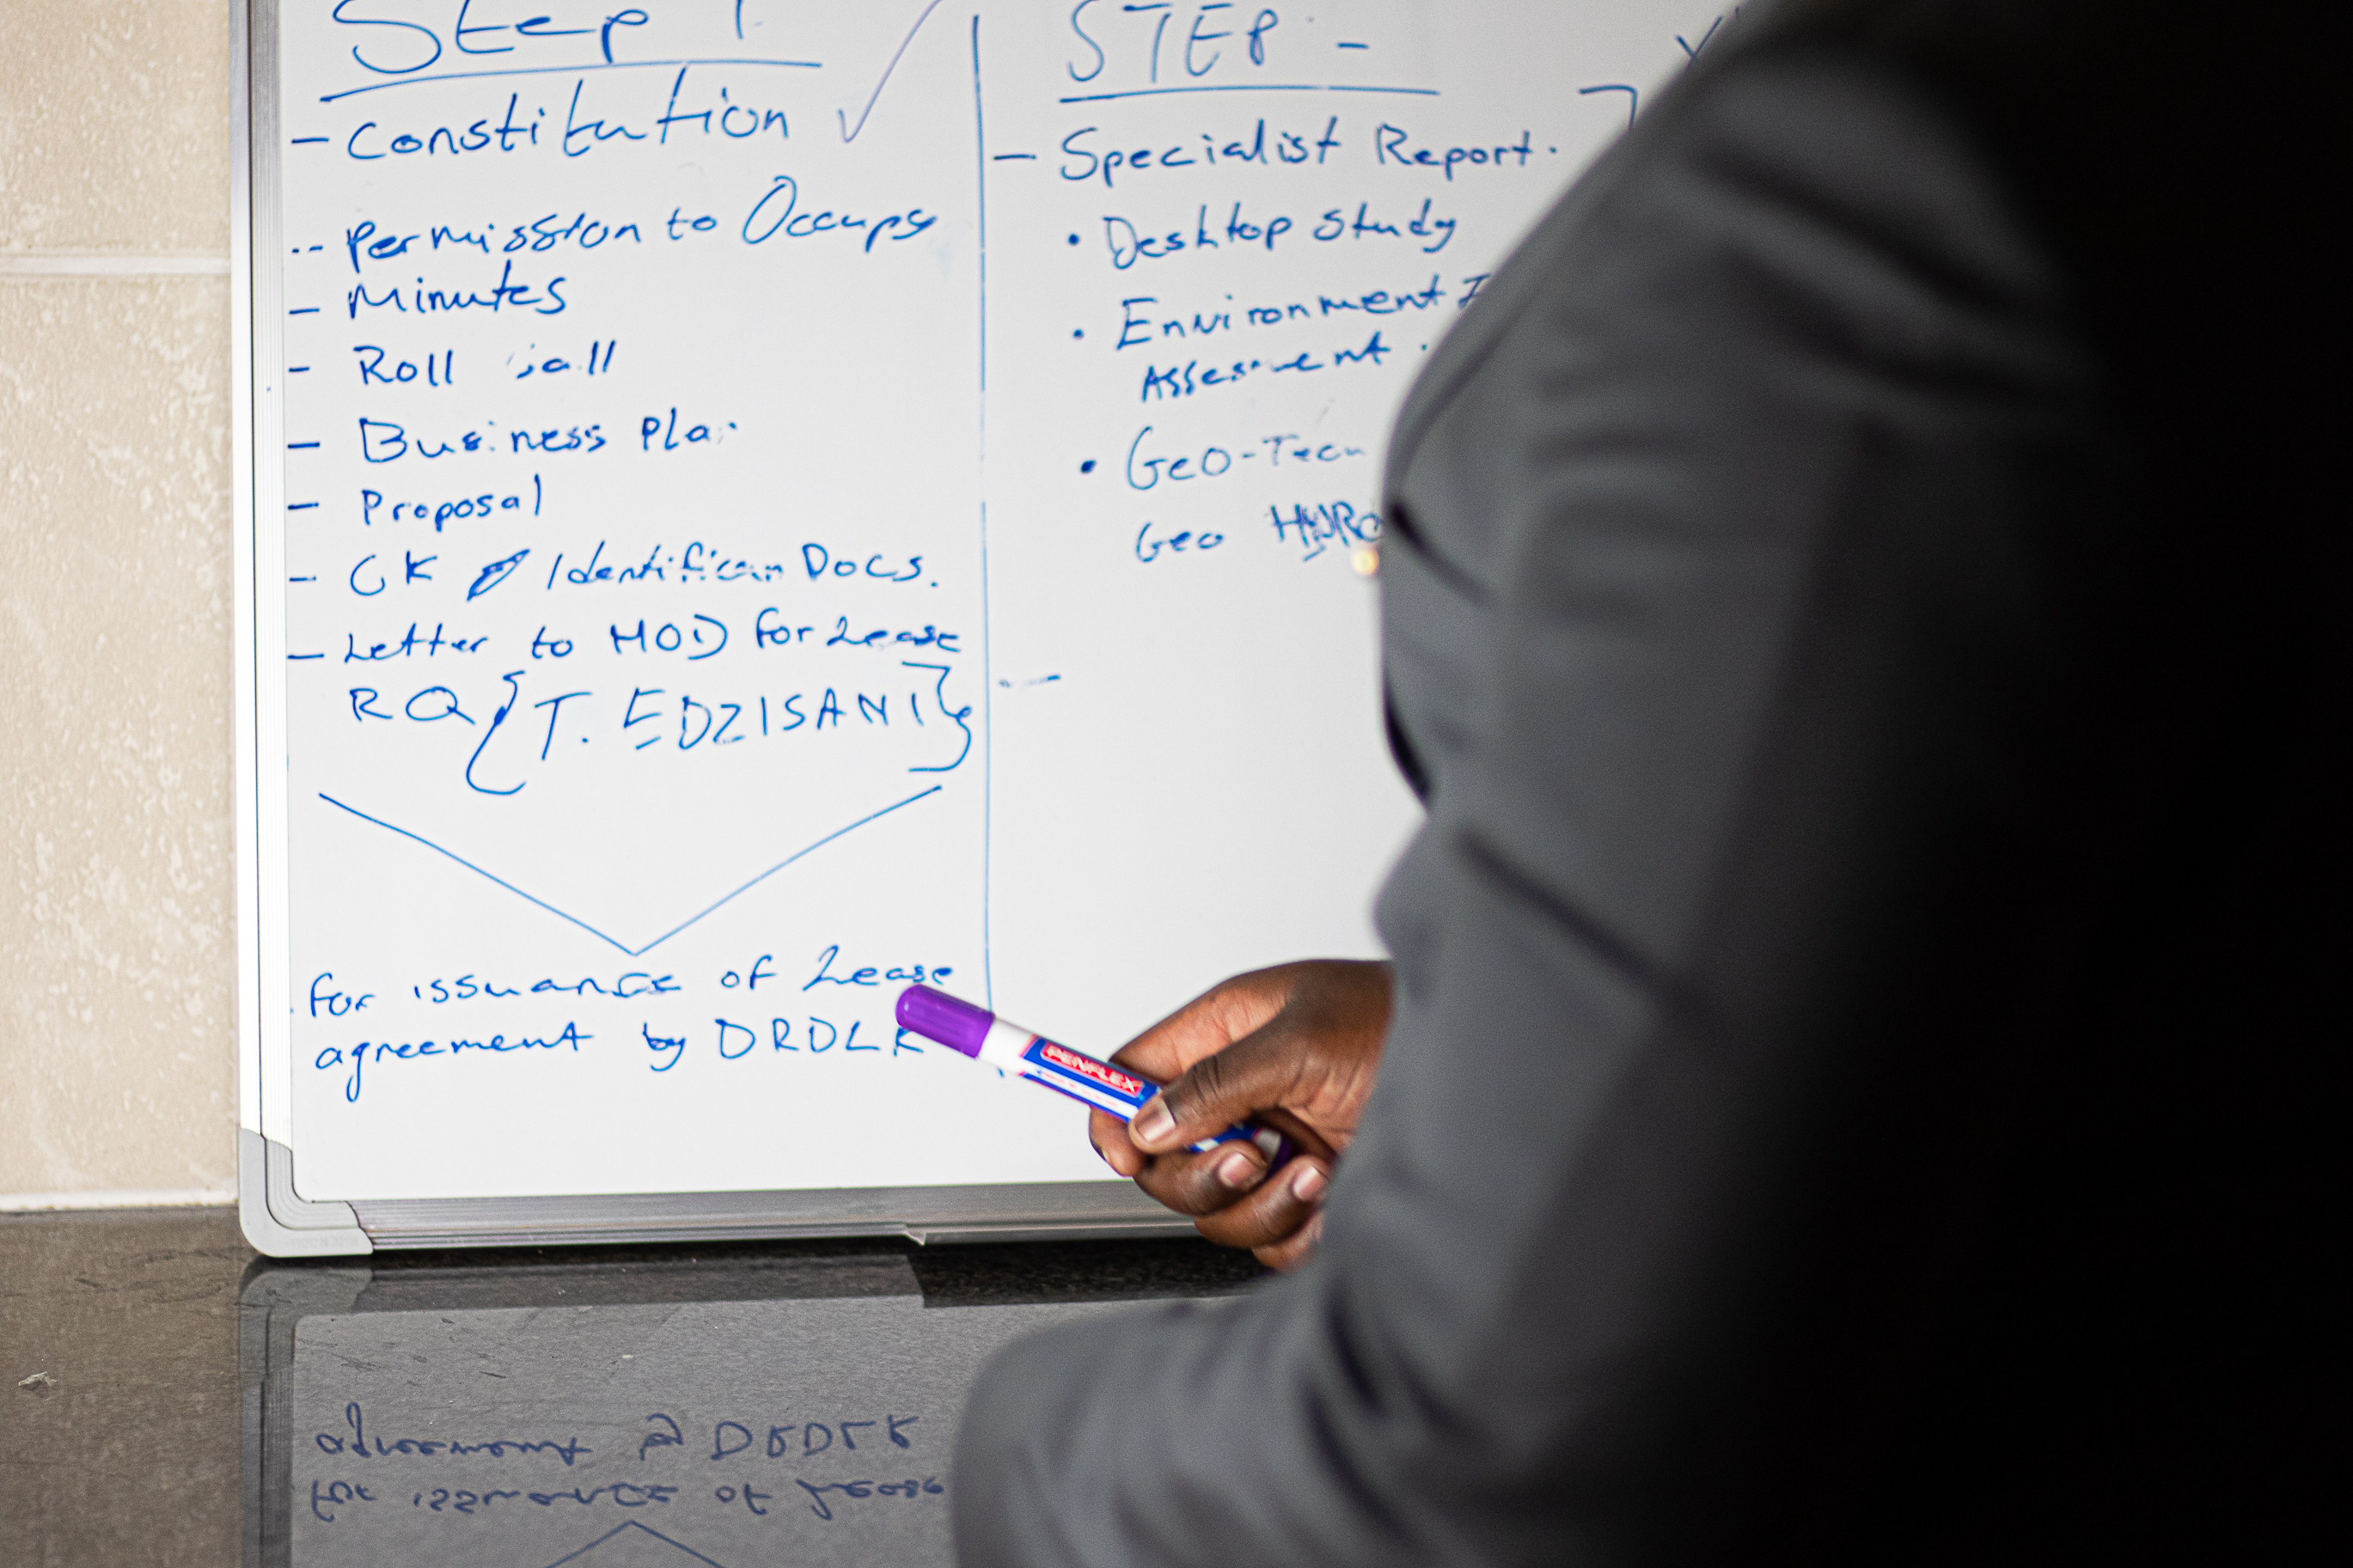 Step 1
- Constitution ✓
-- Permission to Occupy
- Minutes
- Roll call
- Business Pla
- Proposal
- CK Docs.
- Letter to MOD for Lease
RQ {T. EDZISANI}
for issuance of Lease
agreement by DRDLR
STEP -
- Specialist Report.
• Desktop study
• Environment I
Assesment.
• Geo-Tech
Geo HYDRO
PENFLEX